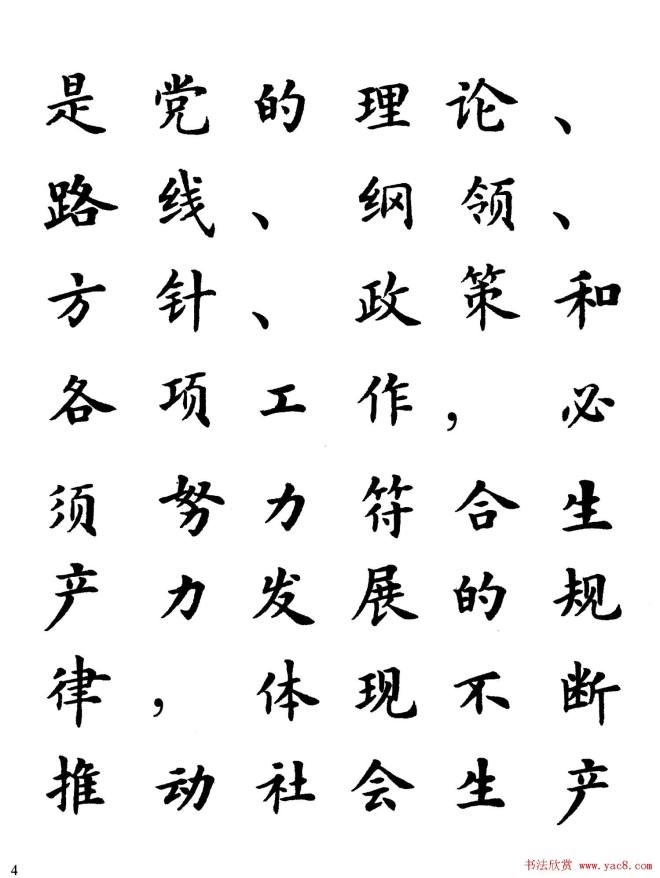 是党的理论、
路线、纲领、
方针、政策和
各项工作，必
须努力符合生
产力发展的规
律，体现不断
推动社会生产
4
书法欣赏 www.yac8.com